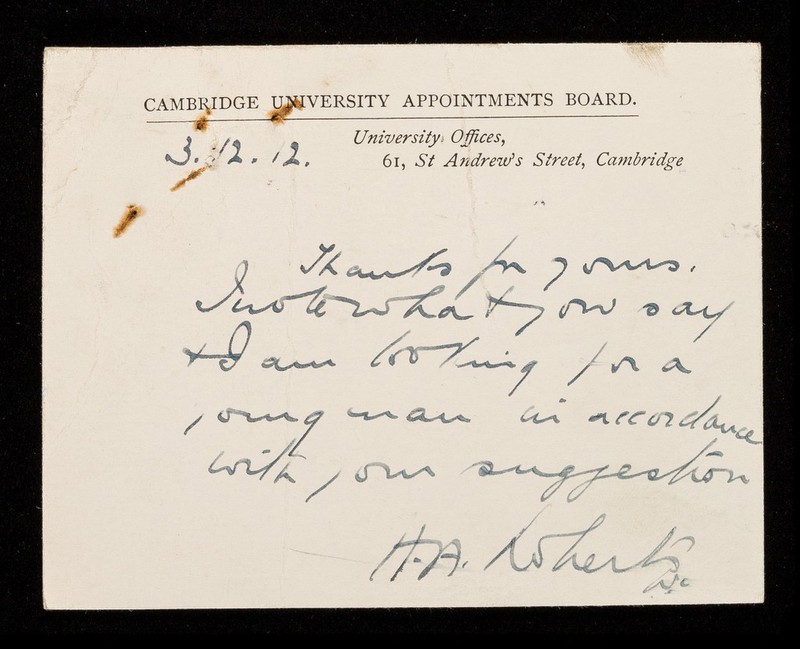 CAMBRIDGE UNIVERSITY APPOINTMENTS BOARD.
University Offices,
61, St Andrew's Street, Cambridge
3.12.12.
Thanks for yours.
I note what you say
& I am looking for a
young man in accordance
with your suggestion
H.A. Roberts